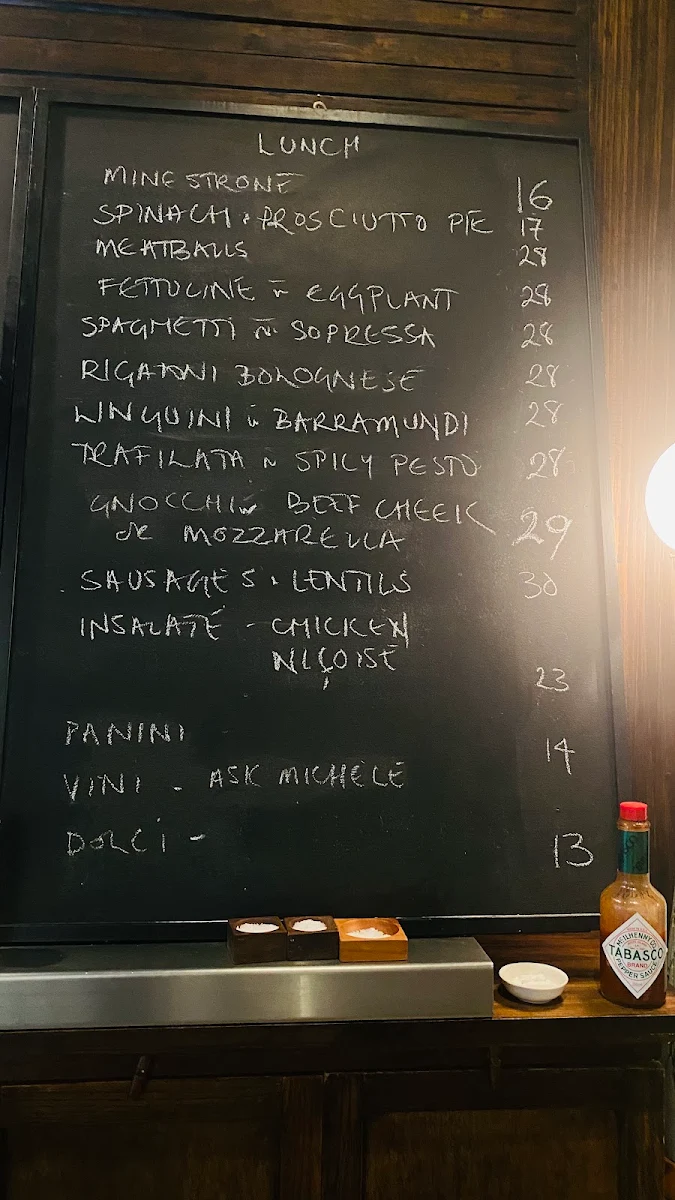 LUNCH
MINESTRONE 16
SPINACH & PROSCIUTTO PIE 17
MEATBALLS 28
FETTUCINE w EGGPLANT 28
SPAGHETTI w SOPRESSA 28
RIGATONI BOLOGNESE 28
LINQUINI w BARRAMUNDI 28
TRAFILATA w SPICY PESTO 28
GNOCCHI w BEEF CHEEK
& MOZZARELLA 29
SAUSAGES & LENTILS 30
INSALATE - CHICKEN
NIÇOISE 23
PANINI 14
VINI - ASK MICHELE
DOLCI - 13
McILHENNY CO.
TABASCO
BRAND
PEPPER SAUCE